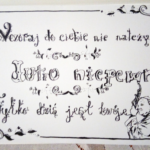 Wczoraj do ciebie nie należy
Jutro niepewne
tylko dziś jest twoje